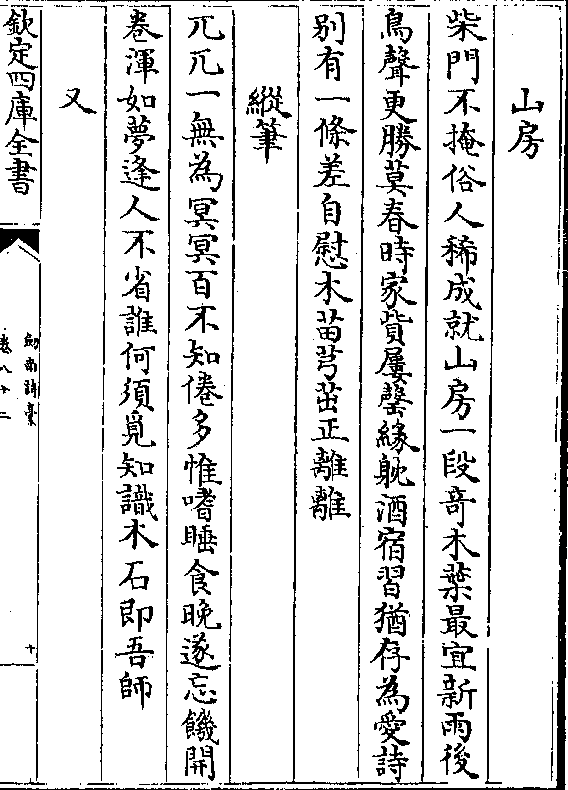 山房
柴門不掩俗人稀成就山房一段竒木葉最宜新雨後
鳥聲更勝莫春時家貲屢罄緣躭酒宿習猶存為愛詩
别有一條差自慰木苗芎茁正離離
縱筆
兀兀一無為冥冥百不知倦多惟嗜睡食晚遂忘饑開
卷渾如夢逢人不省誰何須覓知識木石即吾師
又
欽定四庫全書
劍南詩稾
卷八十二
十